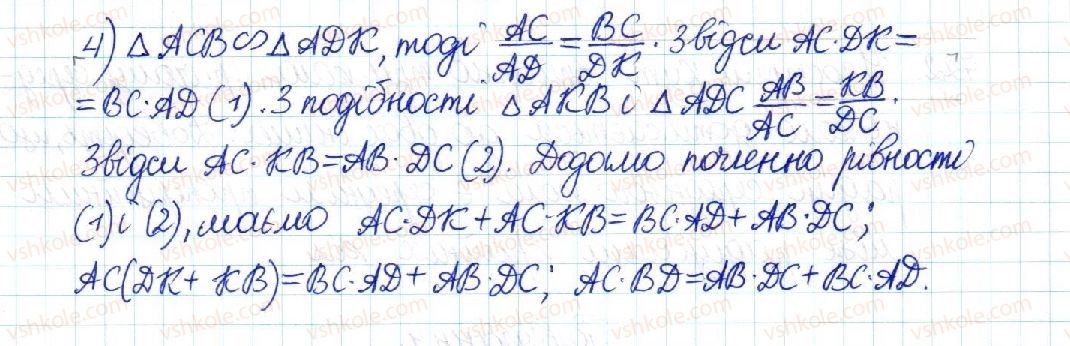 4) △ ACB ∽ △ ADK, тоді AC/AD = BC/DK. Звідси AC·DK =
= BC·AD (1). З подібності △ AKB і △ ADC AB/AC = KB/DC.
Звідси AC·KB = AB·DC (2). Додамо почленно рівності
(1) і (2), маємо AC·DK + AC·KB = BC·AD + AB·DC;
AC(DK + KB) = BC·AD + AB·DC; AC·BD = AB·DC + BC·AD.